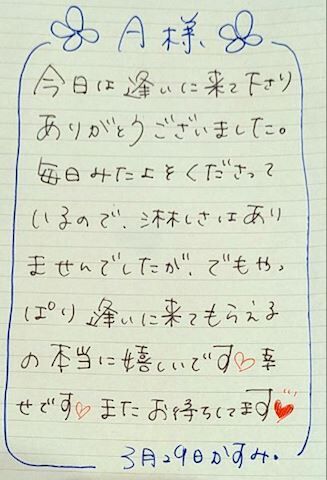 A様
今日は逢いに来て下さり
ありがとうございました。
毎日みたよをくださって
いるので、淋しさはあり
ませんでしたが、でもやっ
ぱり逢いに来てもらえる
の本当に嬉しいです♡幸
せです♡またお待ちしてます♥
3月29日かすみ。